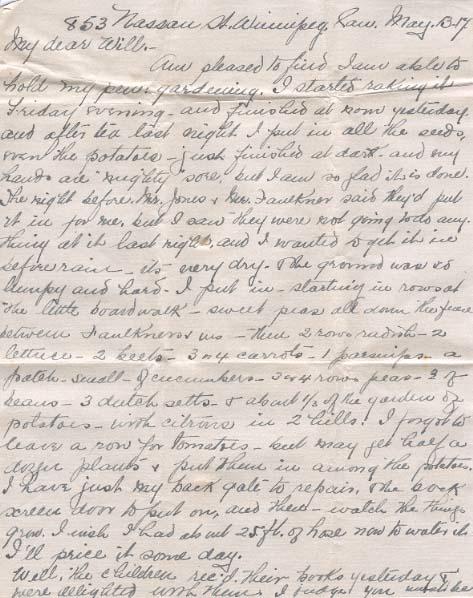 853 Nassau St. Winnipeg, Can. May. 13-17
My dear Will,-
Am pleased to find I am able to
hold my pen: gardening. I started raking it
Friday evening - and finished at noon yesterday
and after tea last night I put in all the seeds,
even the potatoes - just finished at dark - and my
hands are mighty sore, but I am so glad it is done.
The night before, Mr. Jones & Mr. Faulkner said they'd put
it in for me, but I saw they were not going to do any-
thing at it last night, and I wanted to get it in
before rain - it's very dry - & the ground was so
lumpy and hard - I put in - starting in rows at
the little boardwalk - sweet peas all down the fence
between Faulkners & us - then 2 rows radish - 2
lettuce - 2 beets - 3 or 4 carrots - 1 parsnips - a
patch - small - of cucumbers - 3 or 4 rows peas - 3 of
beans - 3 dutch setts - & about 1/2 of the garden of
potatoes - with citrons in 2 hills! I forgot to
leave a row for tomatoes - but may get half a
dozen plants & put them in among the potatoes
I have just my back gate to repair, & the back
screen door to put on, and then - watch the things
grow. I wish I had about 25 ft. of hose now to water it
I'll price it some day.
Well, the children rec'd their books yesterday &
were delighted with them. I judge you must be